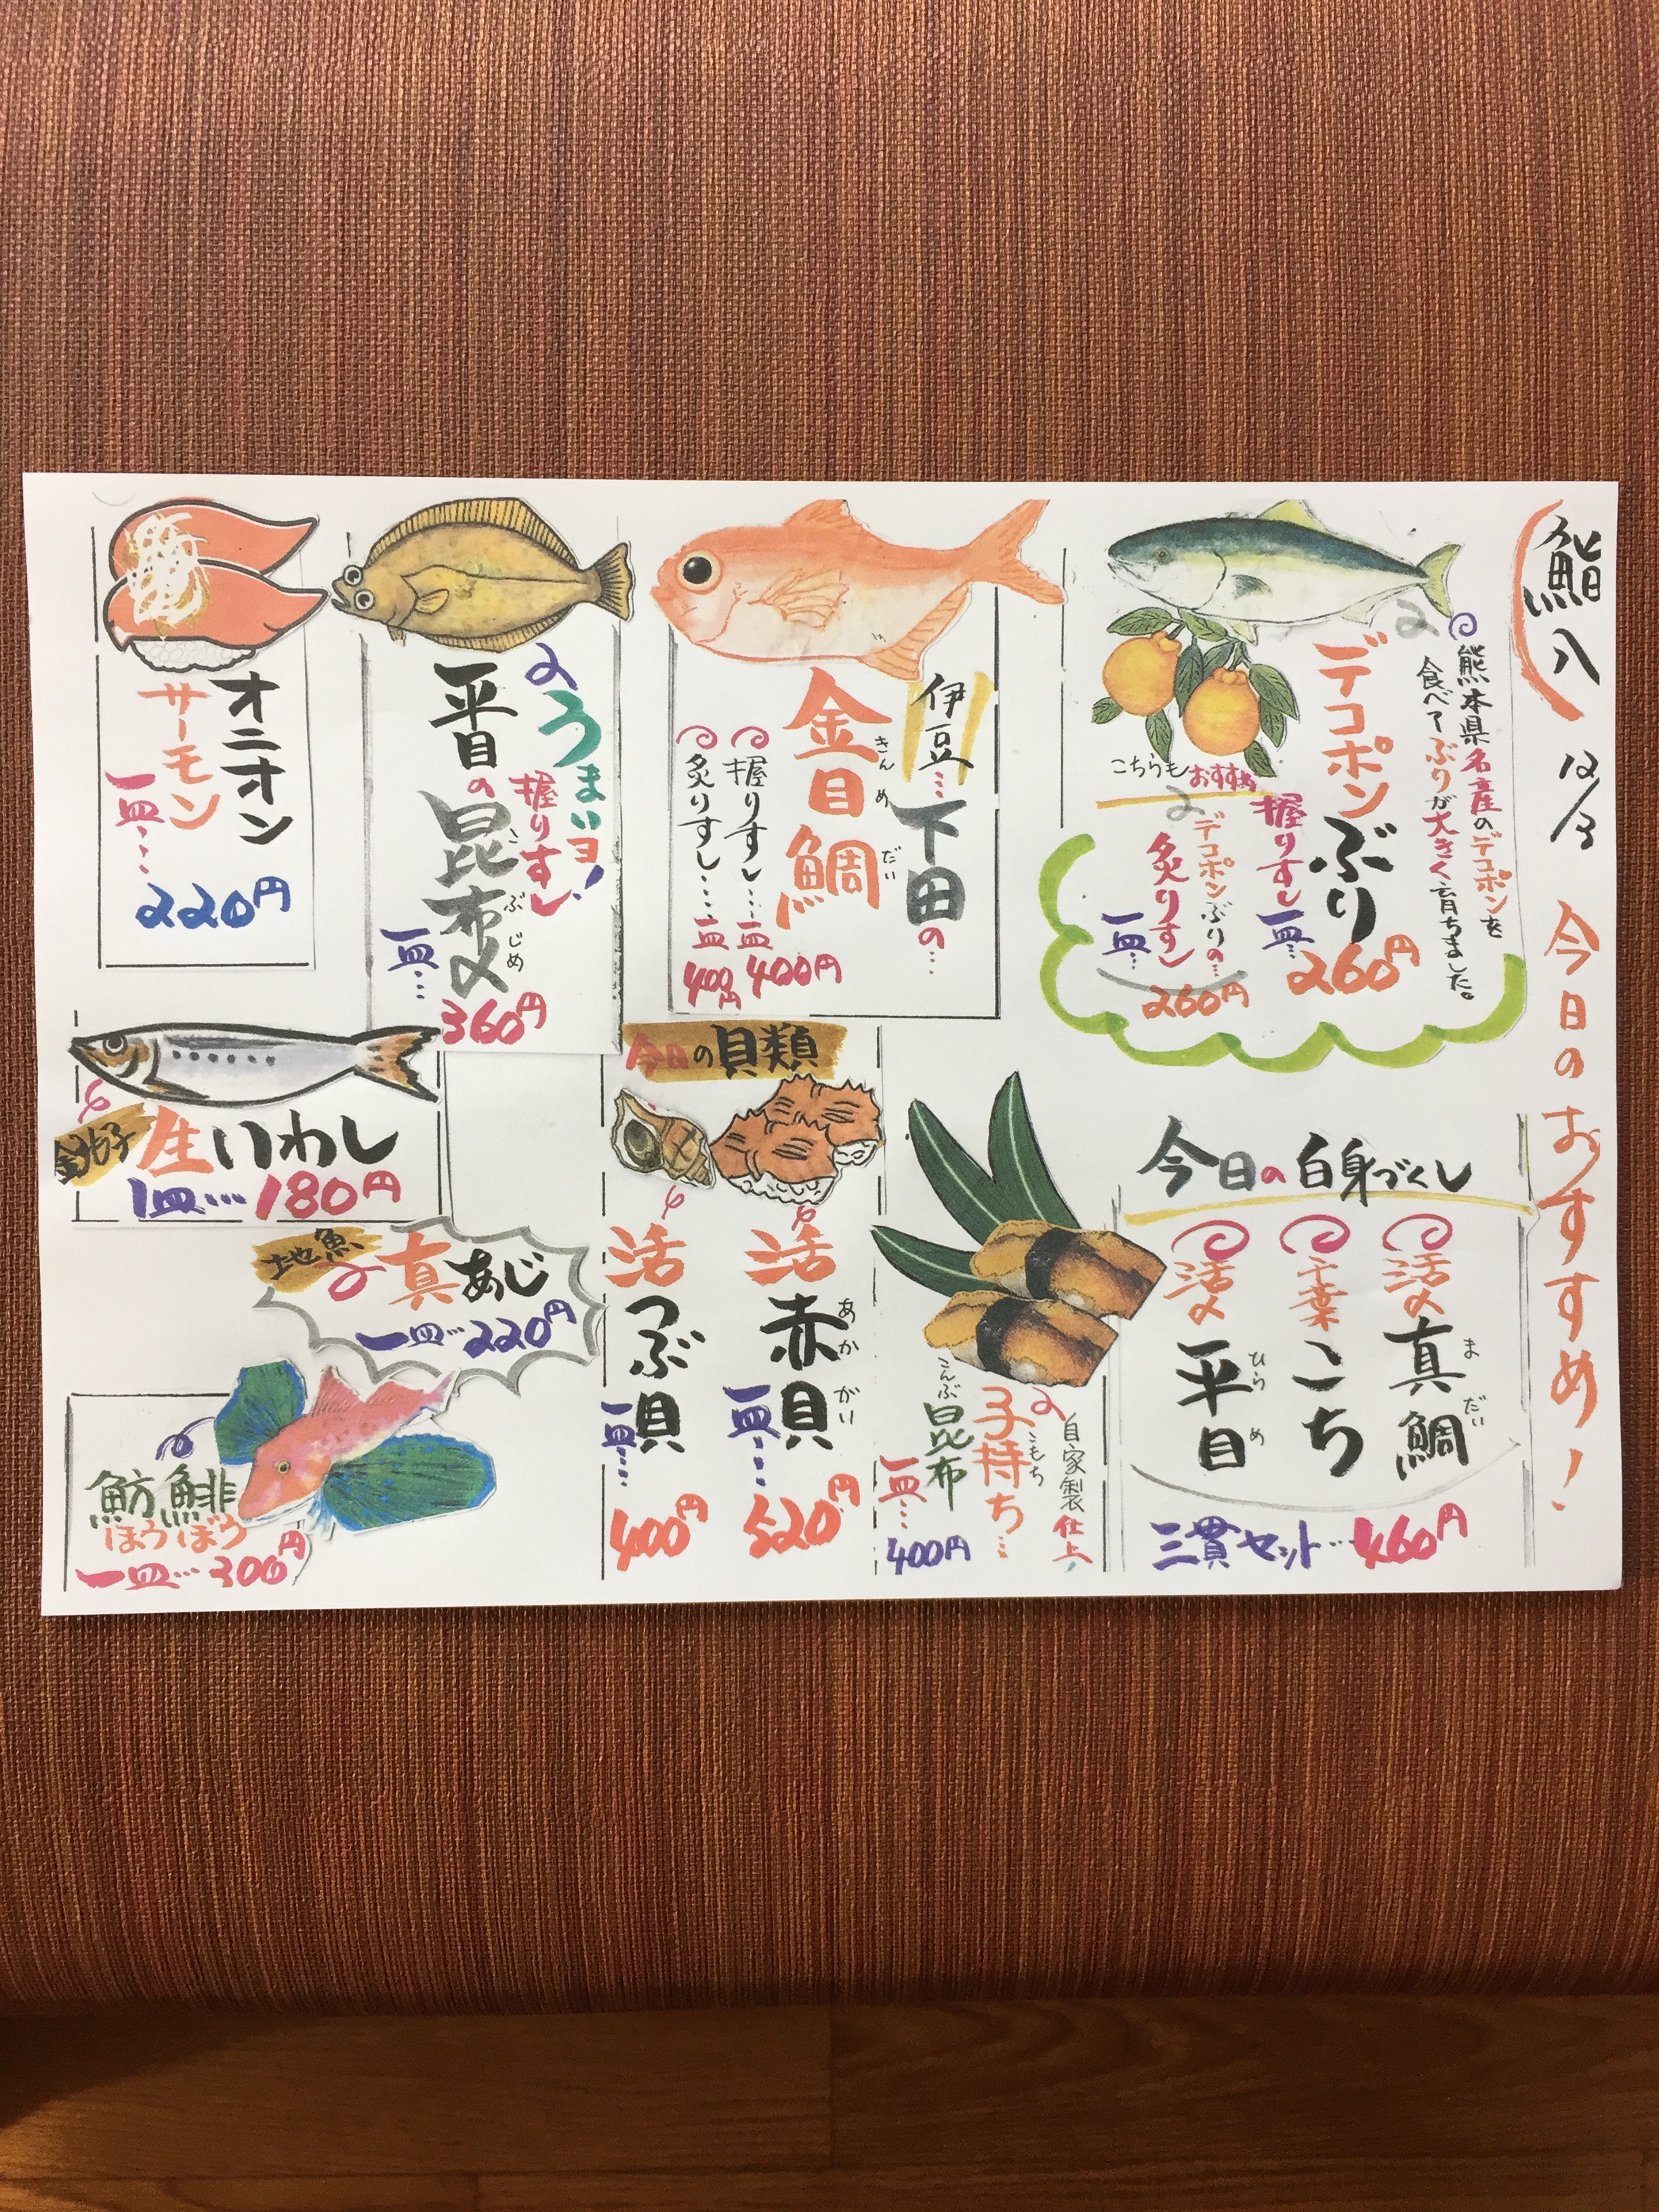 鮨八
12/3
今日のおすすめ!
熊本県名産のデコポンを
食べてぶりが大きく育ちました。
デコポンぶり
握りすし
一皿…260円
こちらもおすすめ
デコポンぶりの…
炙りすし
一皿…260円
伊豆…下田の…
金目鯛
きんめだい
握りすし…一皿400円
炙りすし…一皿400円
うまいヨ!
握りすし
平目の昆布〆
こぶじめ
一皿…360円
オニオン
サーモン
一皿…220円
今日の白身づくし
活〆真鯛
まだい
千葉こち
活〆平目
ひらめ
三貫セット…460円
自家製仕上
子持ち…
こもち
昆布
こんぶ
一皿…400円
今日の貝類
活赤貝
あかがい
一皿…520円
活つぶ貝
一皿…400円
銚子
生いわし
1皿…180円
地魚
真あじ
一皿…220円
魴鯡
ほうぼう
一皿…300円